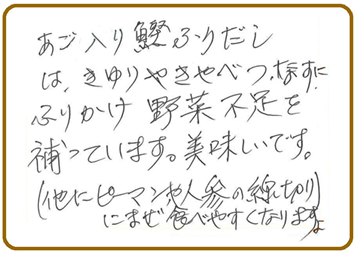 あご入り鰹ふりだし
は、きゆりやきやべつ、なすに
ふりかけ 野菜不足を
補っています。美味しいです。
(他にピーマンや人参の線切り)
にまぜ食べやすくなりますよ